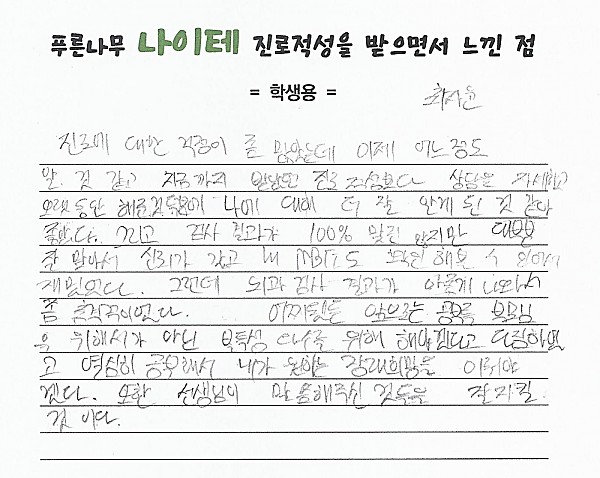 푸른나무 나이테 진로적성을 받으면서 느낀 점
= 학생용 =
진로에 대한 걱정이 좀 많았는데 이제 어느정도
알 것 같고 지금까지 받았던 진로적성보다 상담을 자세하고
오랫동안 해주셨기에 나에 대해 더 잘 알게 된 것 같아
좋았다. 그리고 검사 결과가 100% 맞진 않지만 대부분
잘 맞아서 신뢰가 갔고 내 MBTI도 확인해볼 수 있어서
재밌었다. 그런데 뇌과검사 결과가 이렇게 나와서
좀 충격적이었다. 어찌됐든 앞으로는 공부를 부모님
을 위해서가 아닌 나를 위해 해야겠다고 다짐하였
고 열심히 공부해서 내가 원하는 장래희망을 이뤄야
겠다. 또한 선생님이 말씀해주신 것들을 잘 지킬
것 이다.